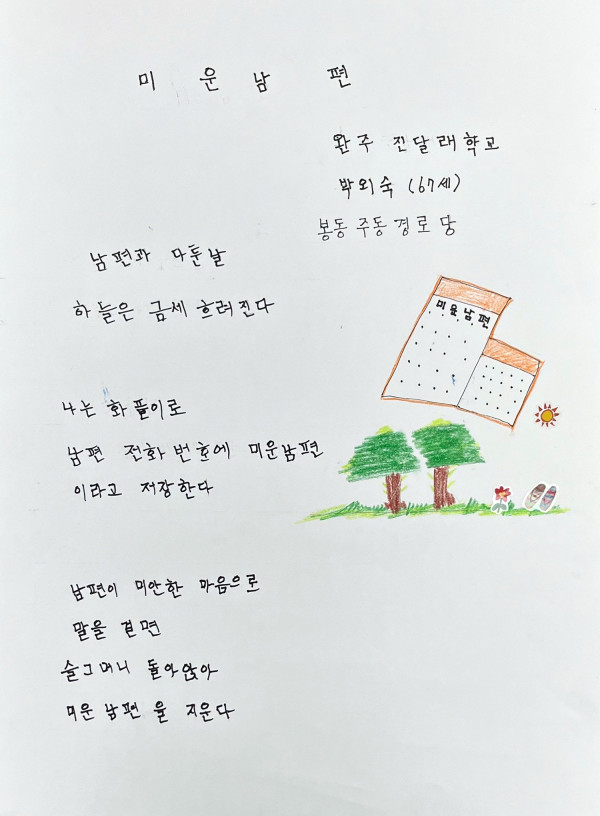 미운남편
완주 진달래학교
박외숙 (67세)
봉동 주동경로당
남편과 다툰날
하늘은 금세 흐려진다
미운남편
나는 화풀이로
남편 전화번호에 미운남편
이라고 저장한다
남편이 미안한 마음으로
말을 걸면
슬그머니 돌아앉아
미운남편을 지운다